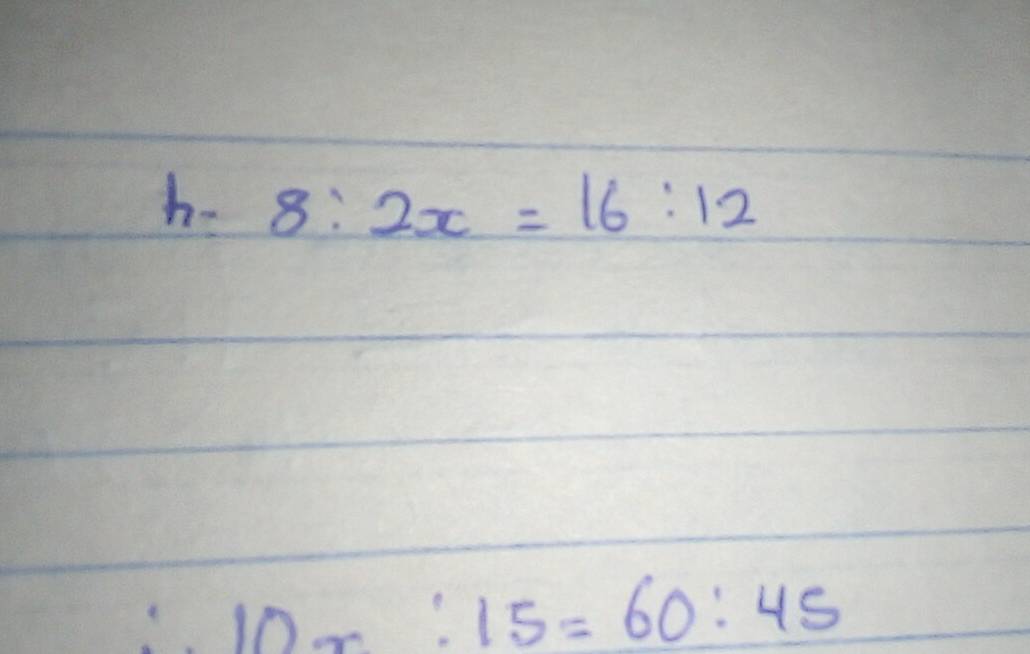 h- 8 : 2x = 16 : 12
10x : 15 = 60 : 45